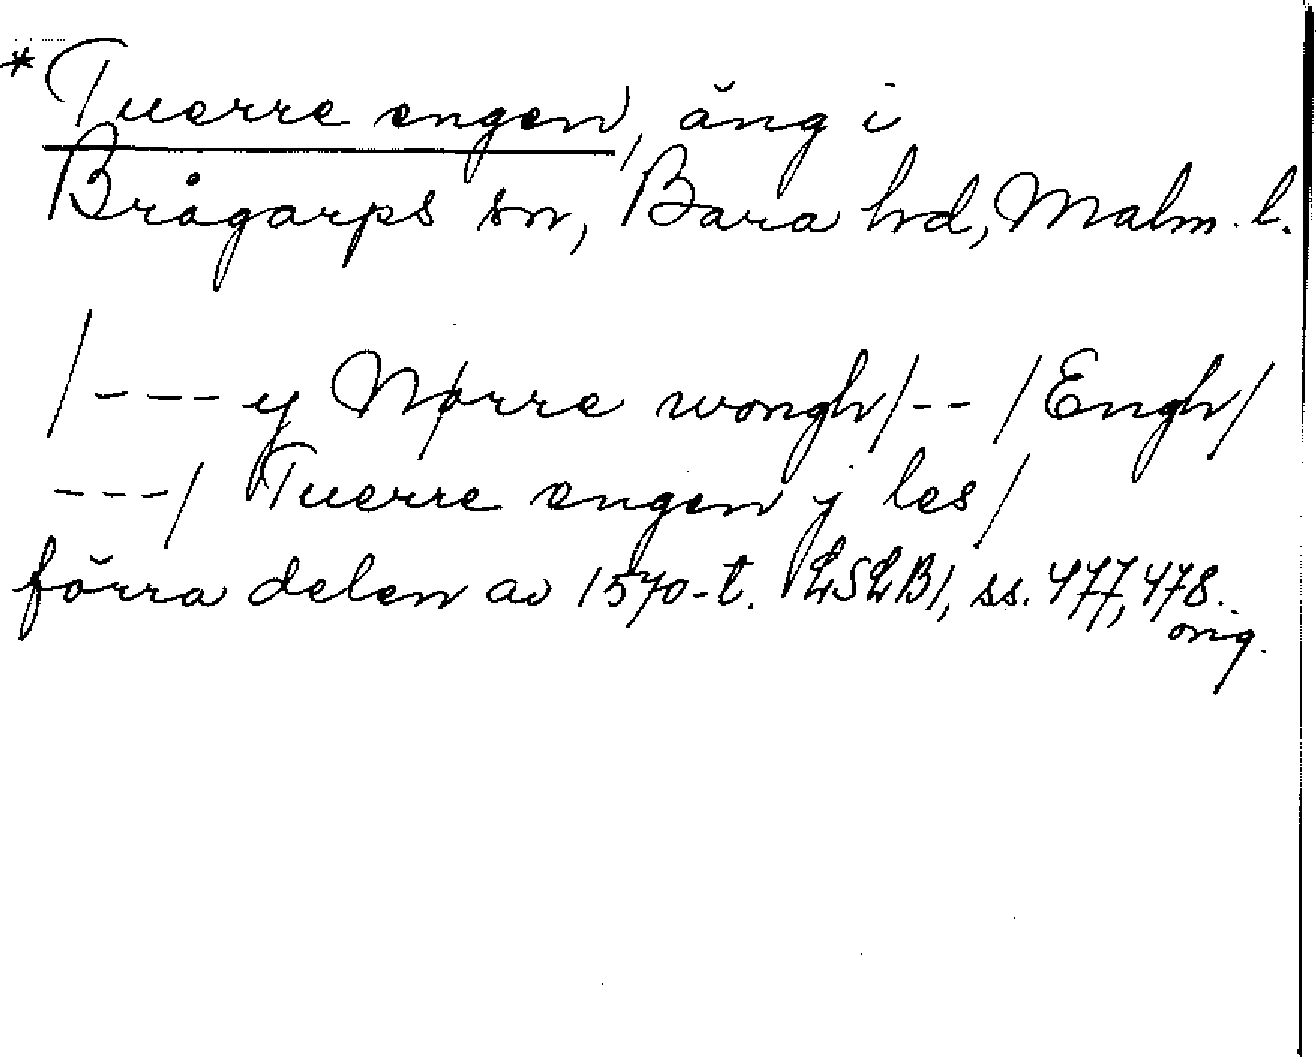 *Tuerre engen, äng i
Brågarps sn, Bara hd, Malm. l.
/--- y Nørre wongh/-- /Engh/
---/ Tuerre engen j les/
förra delen av 1570-t. LSLB1, ss. 477, 478.
orig.